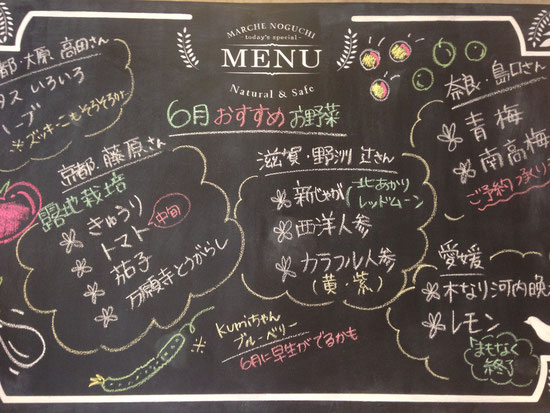 MARCHE NOGUCHI
today's special
MENU
Natural & Safe
6月おすすめお野菜
都・大原 高田さん
タスいろいろ
ハーブ
※ズッキーニもそろそろか…
京都・藤原さん
露地栽培
きゅうり
トマト 中旬
茄子
万願寺とうがらし
滋賀・野洲 辻さん
新じゃが 北あかり
レッドムーン
西洋人参
カラフル人参
(黄・紫)
奈良・島口さん
青梅
南高梅
ご予約つづくり
愛媛
木なり河内晩
レモン
まもなく
終了
※ Kumiちゃん
ブルーベリー
6月に早生がでるかも